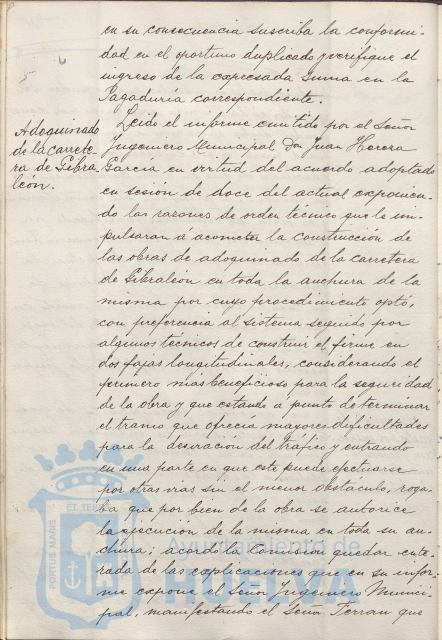 en su consecuencia suscriba la conformi-
dad en el oportuno duplicado y verifique el
ingreso de la expresada suma en la
Pagaduría correspondiente.
Adoquinado
de la carrete-
ra de Gibra
león.
Leido el informe emitido por el Señor
Ingeniero Municipal Don Juan Herera
García en virtud del acuerdo adoptado
en sesión de doce del actual exponien-
do las razones de orden técnico que le im-
pulsaran á acometer la construcción de
las obras de adoquinado de la carretera
de Gibraleón en toda la anchura de la
misma por cuyo procedimiento optó,
con preferencia al sistema seguido por
algunos técnicos de construir el firme en
dos fajas longitudinales, considerando el
primero más beneficioso para la seguridad
de la obra y que estando á punto de terminar
el tramo que ofrecia mayores dificultades
para la desviación del tráfico y entrando
en una parte en que este puede efectuarse
por otras vias sin el menor obstáculo, roga-
ba que por bien de la obra se autorice
la ejecución de la misma en toda su an-
chura; acordó la Comisión quedar ente-
rada de las explicaciones que en su infor-
me expone el Señor Ingeniero Munici-
pal, manifestando el Señor Terran que
PORTUS MARIS
ET TERR
Ayuntamiento de
HUELVA